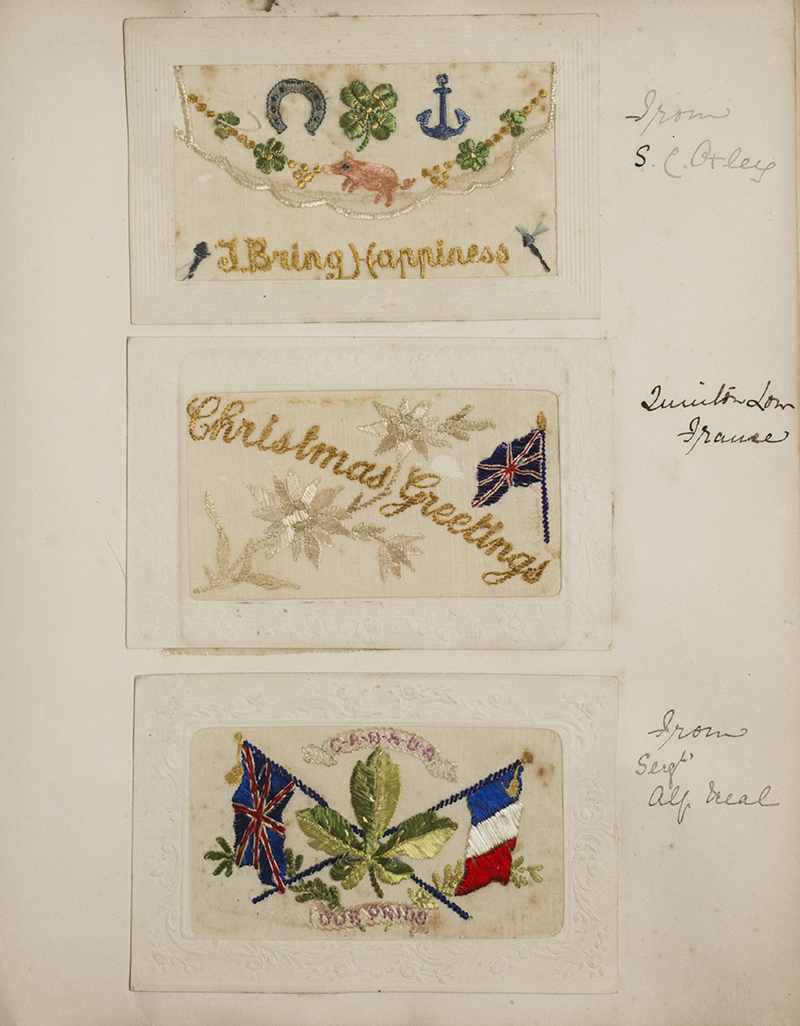 I Bring Happiness
From
S. C. Oxley
Christmas Greetings
Quinton Low
France
CANADA
OUR PRIDE
From
Sergt
Alf. Neal